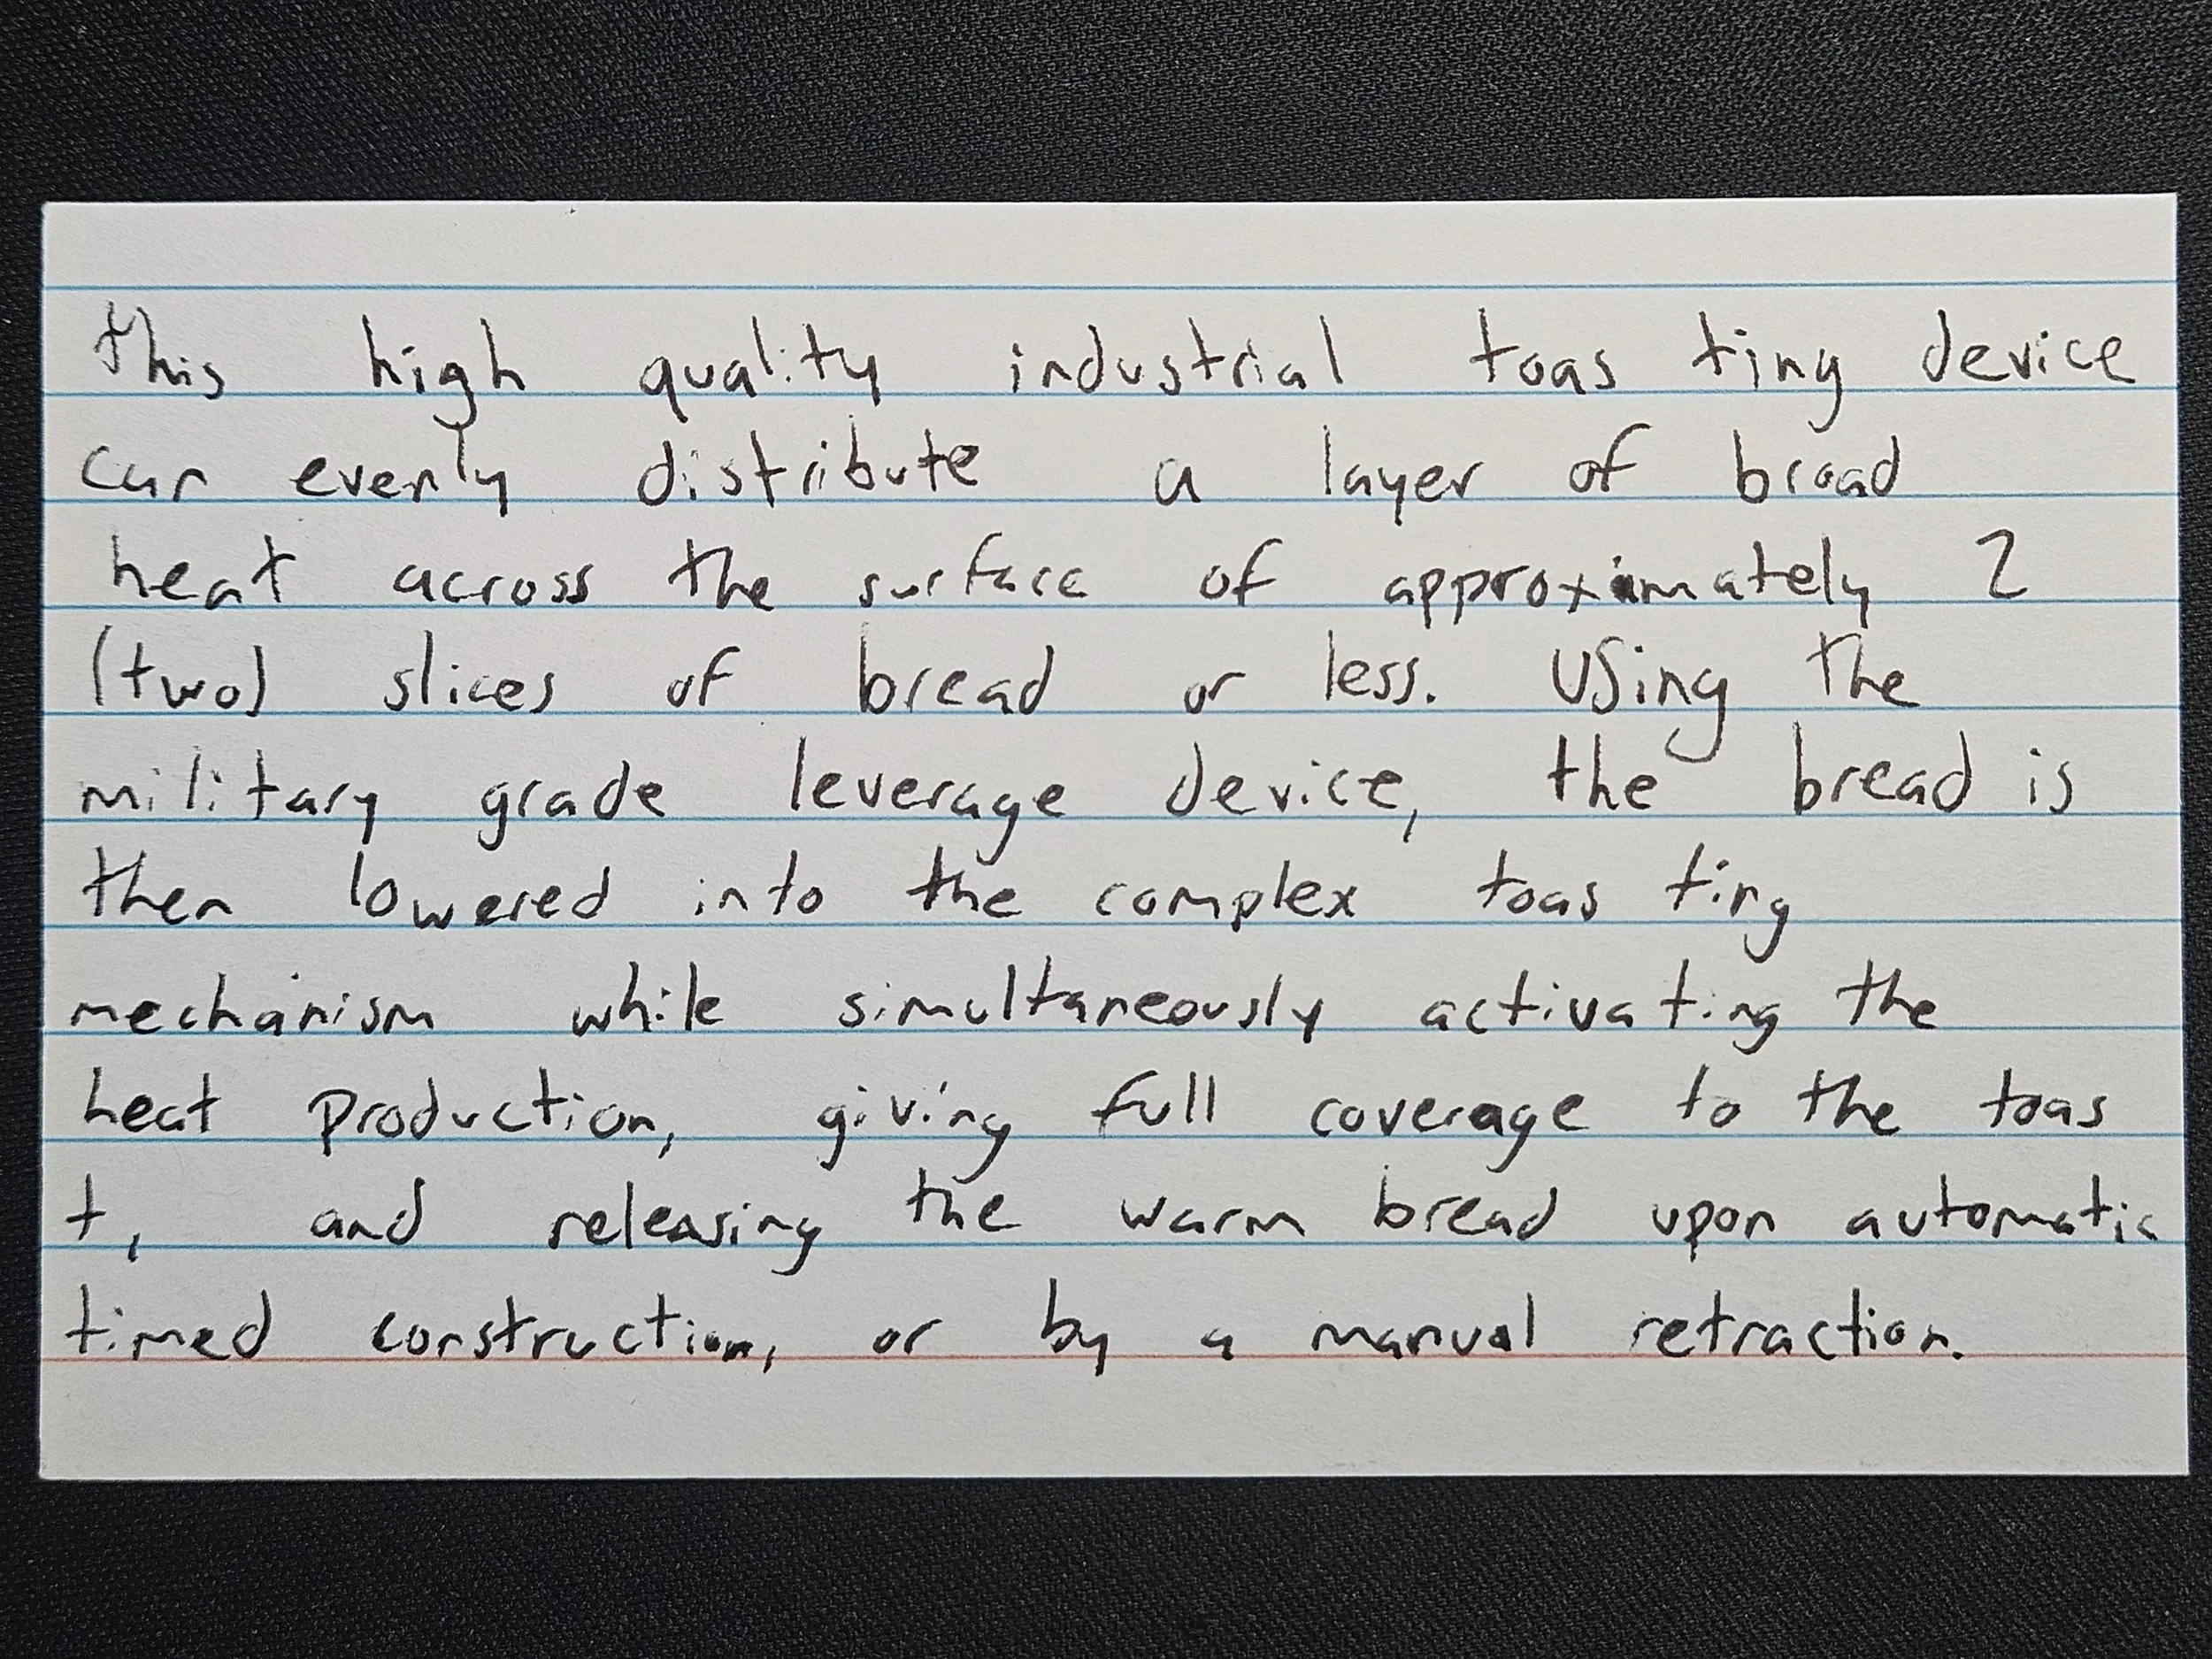 this high quality industrial toas ting device
can evenly distribute a layer of broad
heat across the surface of approximately 2
(two) slices of bread or less. Using the
military grade leverage device, the bread is
then lowered into the complex toas ting
mechanism while simultaneously activating the
heat production, giving full coverage to the toas
t, and releasing the warm bread upon automatic
timed construction, or by a manual retraction.